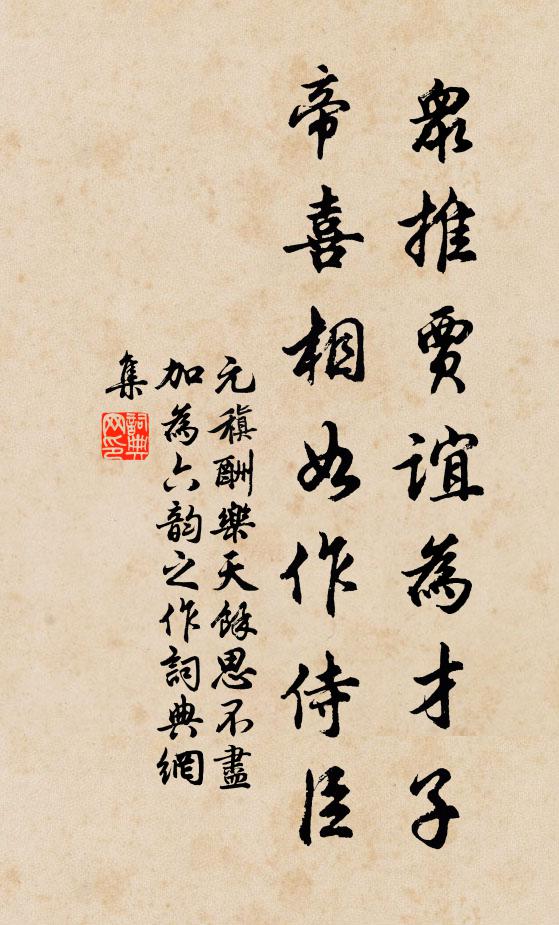 眾推賈誼為才子
帝喜相如作侍臣
元稹酬樂天餘思不盡
加為六韵之作詞典網
集
詞典
网印